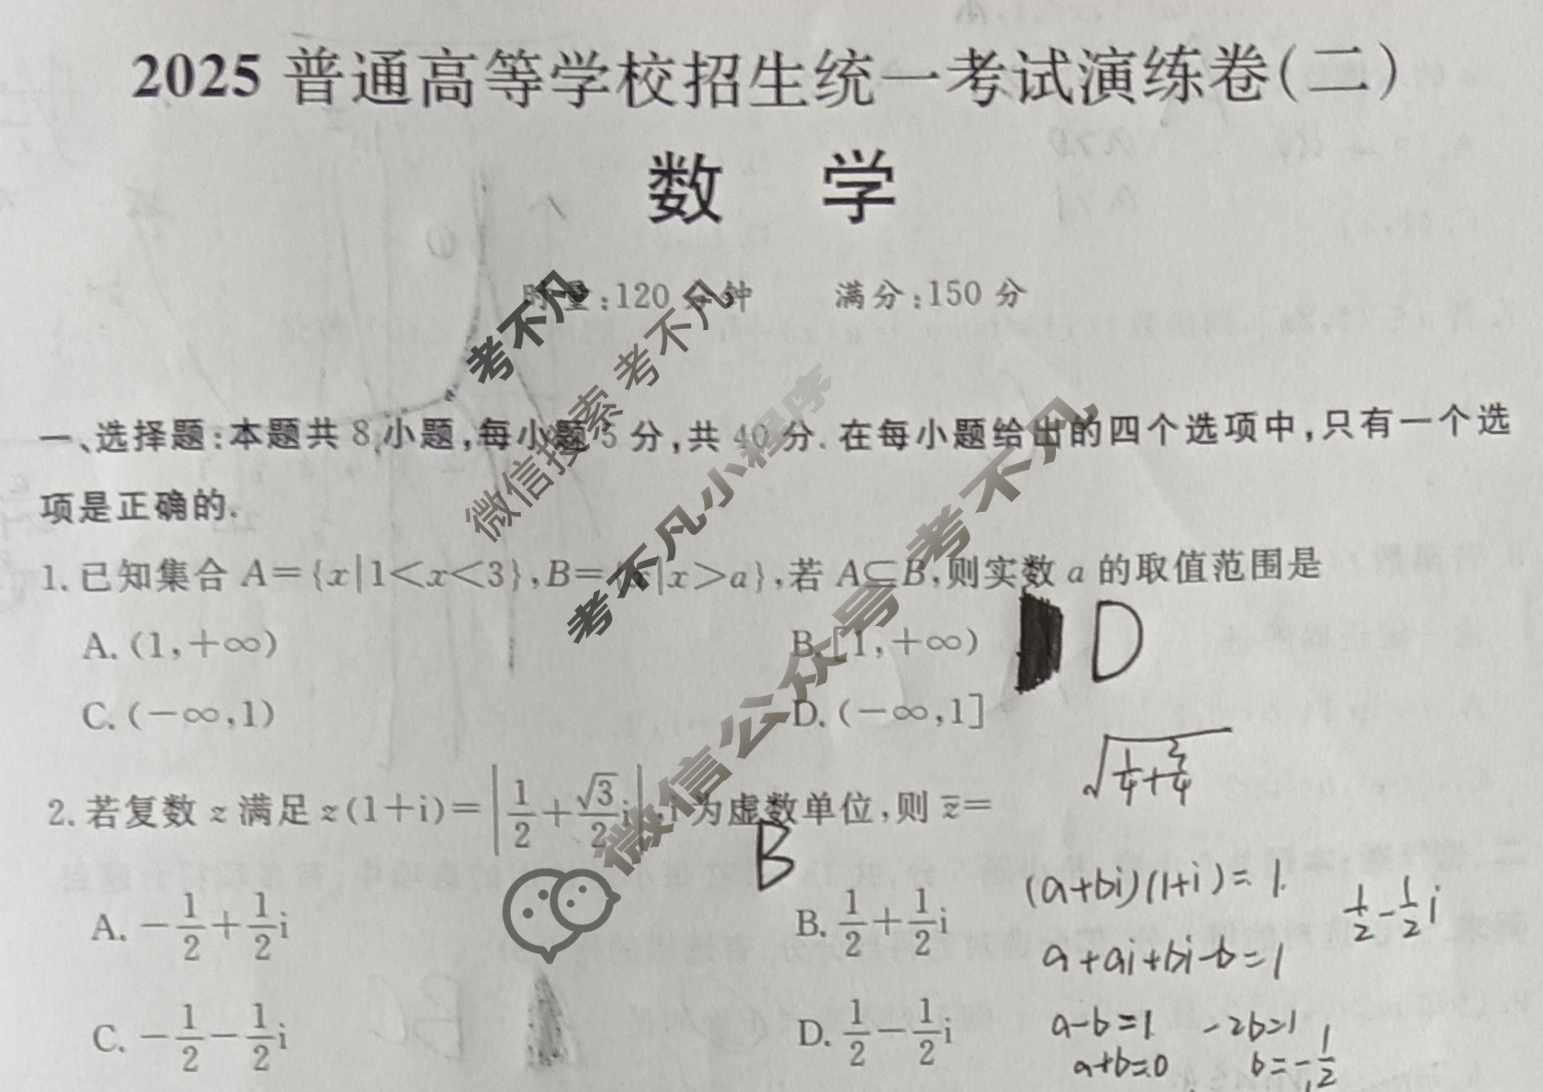 2025普通高等学校招生统一考试演练卷(二)
数 学
时量:120分钟 满分:150分
一、选择题:本题共8小题,每小题5分,共40分.在每小题给出的四个选项中,只有一个选
项是正确的.
1.已知集合A={x|1<x<3},B={x|x>a},若A⊆B,则实数a的取值范围是
A.(1,+∞) B.[1,+∞) D
C.(-∞,1) D.(-∞,1]
√(1/4+3/4)
2.若复数z满足z(1+i)=|1/2+√3/2 i|,i为虚数单位,则z̄=
B
A.-1/2+1/2 i B.1/2+1/2 i
(a+bi)(1+i)=1. 1/2-1/2 i
a+ai+bi-b=1
C.-1/2-1/2 i D.1/2-1/2 i
a-b=1 -2b=1
a+b=0 b=-1/2
考不凡
微信搜索 考不凡
考不凡小程序
微信公众号 考不凡